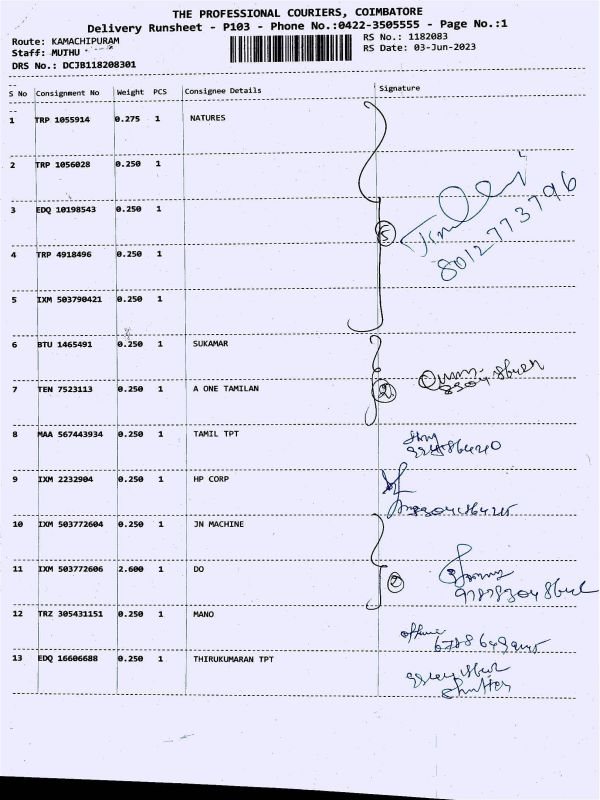 THE PROFESSIONAL COURIERS, COIMBATORE
Delivery Runsheet - P103 - Phone No.:0422-3505555 - Page No.:1
Route: KAMACHIPURAM
RS No.: 1182083
Staff: MUTHU
RS Date: 03-Jun-2023
DRS No.: DCJB118208301
S No Consignment No Weight PCS Consignee Details Signature
1 TRP 1055914 0.275 1 NATURES
2 TRP 1056028 0.250 1
3 EDQ 10198543 0.250 1
5
8012773796
4 TRP 4918496 0.250 1
5 IXM 503790421 0.250 1
6 BTU 1465491 0.250 1 SUKAMAR
7 TEN 7523113 0.250 1 A ONE TAMILAN 2
8 MAA 567443934 0.250 1 TAMIL TPT
9 IXM 2232904 0.250 1 HP CORP
10 IXM 503772604 0.250 1 JN MACHINE
11 IXM 503772606 2.600 1 DO 2
12 TRZ 305431151 0.250 1 MANO
13 EDQ 16606688 0.250 1 THIRUKUMARAN TPT